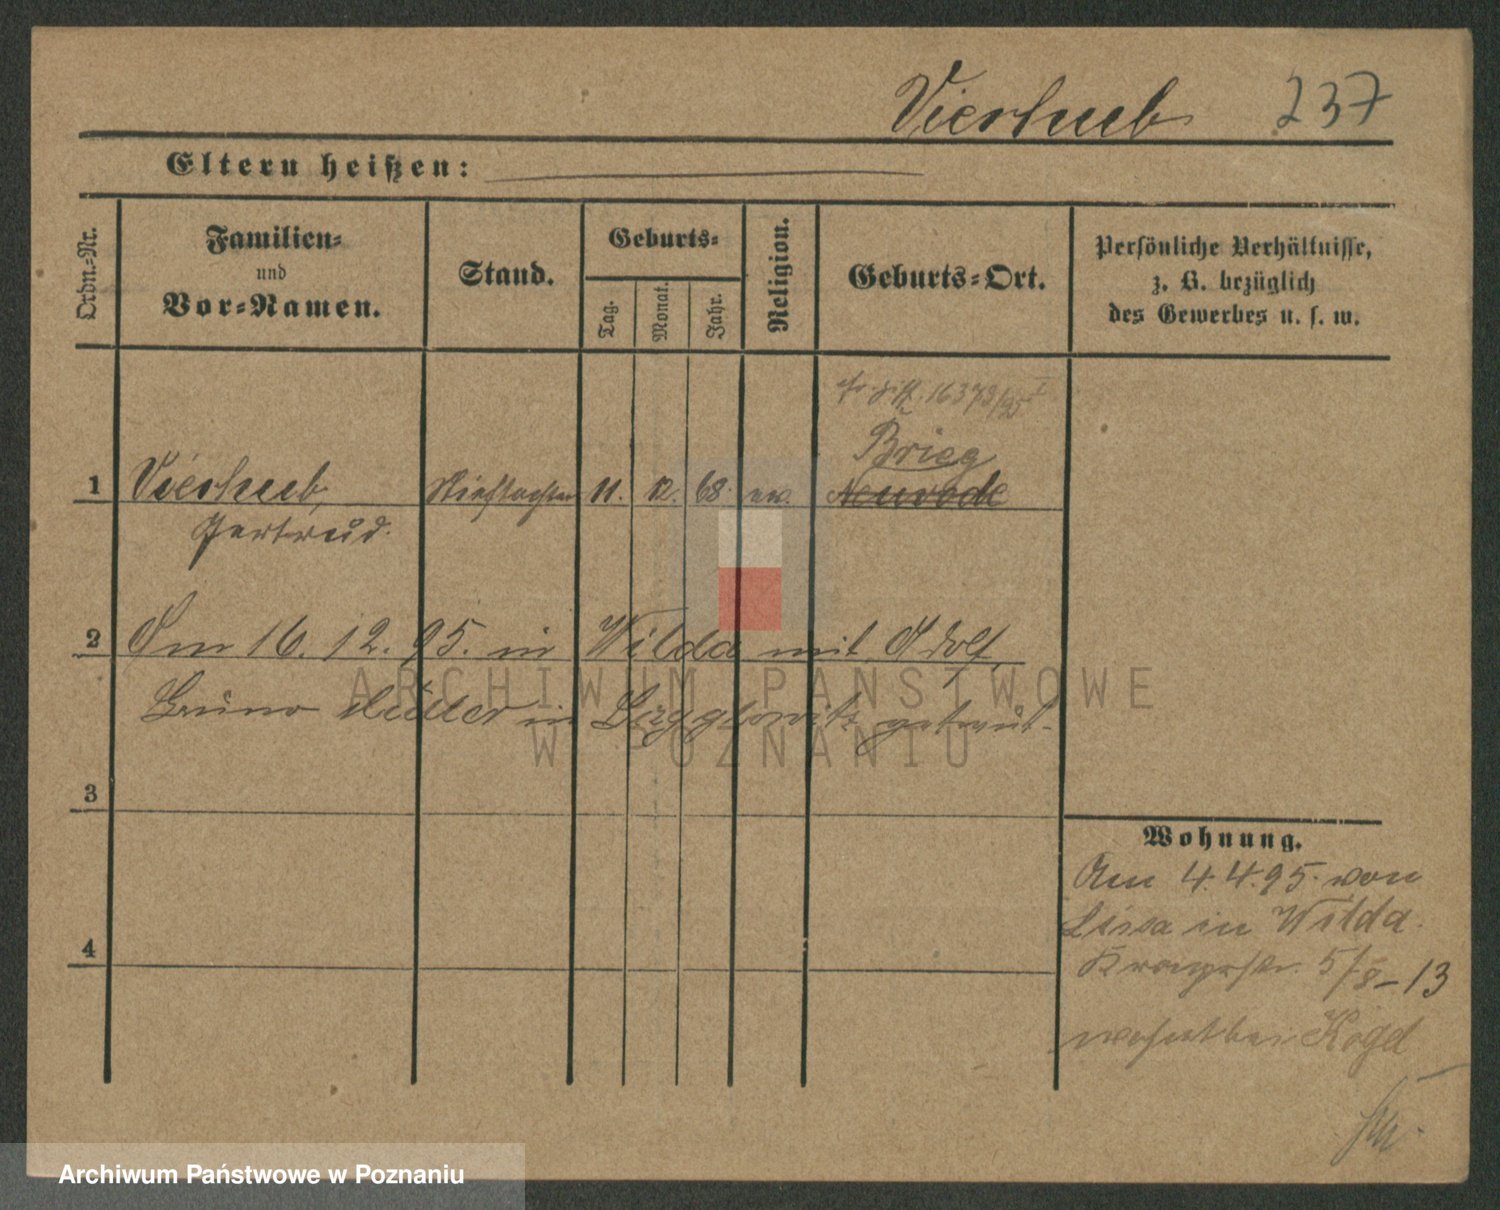 Vierhub 237
Eltern heißen:
Ordn.-Nr.
Familien-
und
Vor-Namen.
Stand.
Geburts-
Tag.
Monat.
Jahr.
Religion.
Geburts-Ort.
Persönliche Verhältnisse,
z. B. bezüglich
des Gewerbes u. s. w.
16373/95 I
Brieg
1 Vierhub, 11. 12. 68. ev. Neurode
Gertrud.
2 Am 16. 12. 95. in Wilda mit Adolf
Bruno Müller in getraut.
3
4
Wohnung.
Am 4.4.95. von
Lissa in Wilda.
Kronprstr. 5/8-13
wohnt bei
ARCHIWUM PAŃSTWOWE
W POZNANIU
Archiwum Państwowe w Poznaniu